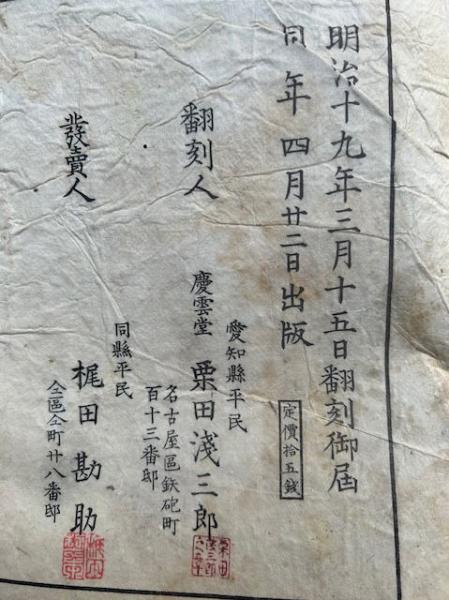 明治十九年三月十五日翻刻御届
同年四月廿二日出版
定價拾五錢
翻刻人
愛知縣平民
慶雲堂 栗田淺三郎
名古屋區鉄砲町
百十三番邸
發賣人
同縣平民
梶田勘助
仝區仝町廿八番邸